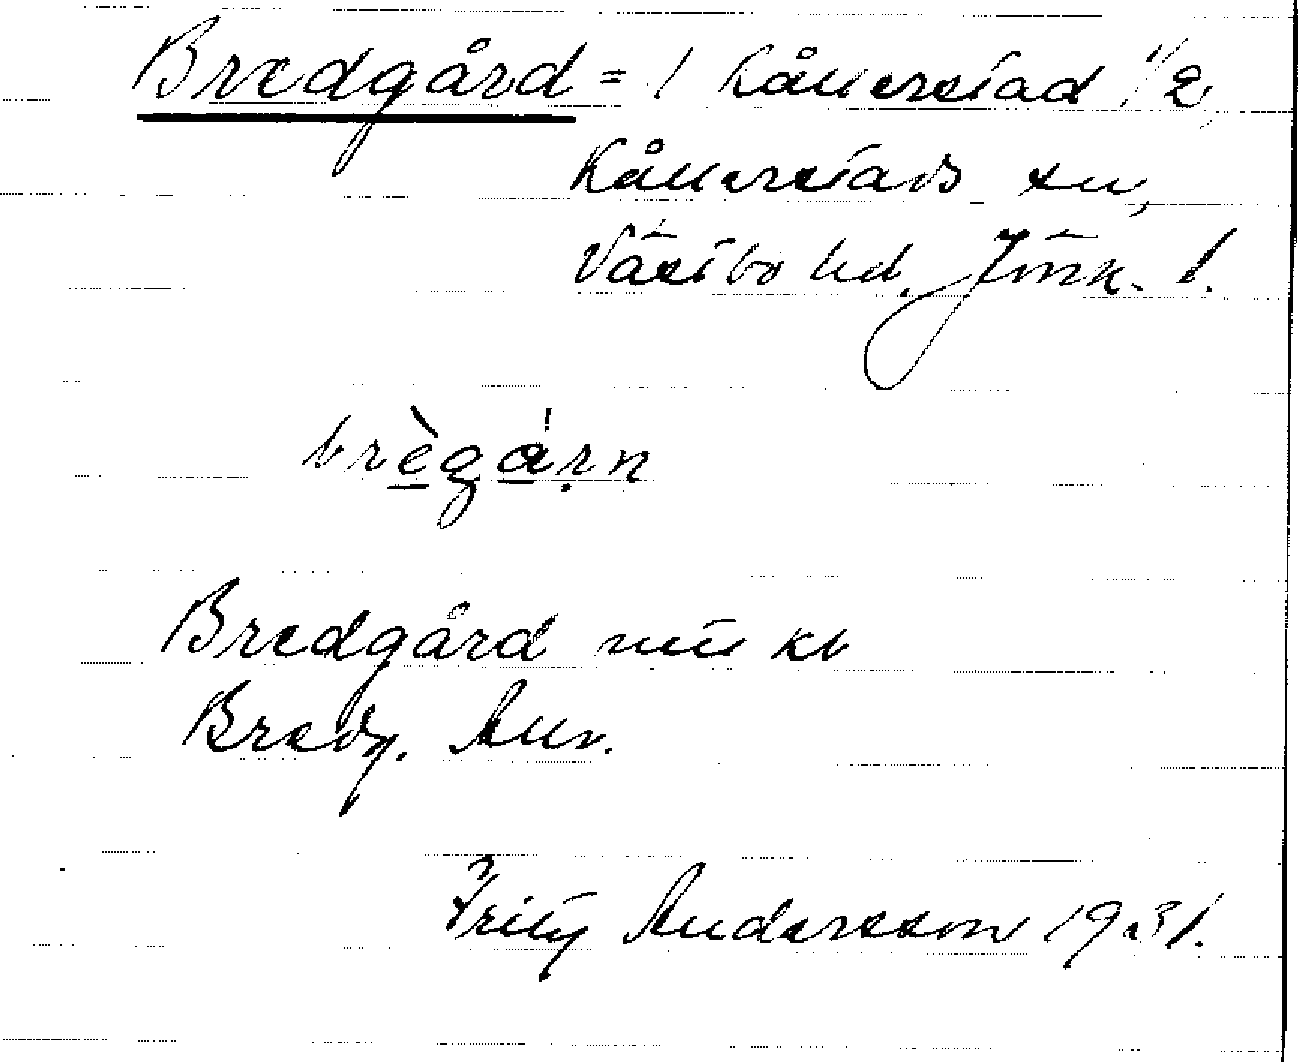 Bredgård = 1 Kållerstad 1/2,
Kållerstads sn,
Västbo hd. Jönk. l.
brègá̀rn
Bredgård mtl kb
Bredg. Allm.
Fritz Andersson 1931.